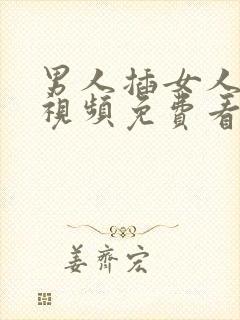 男人插女人
視頻免費看
姜齊宏